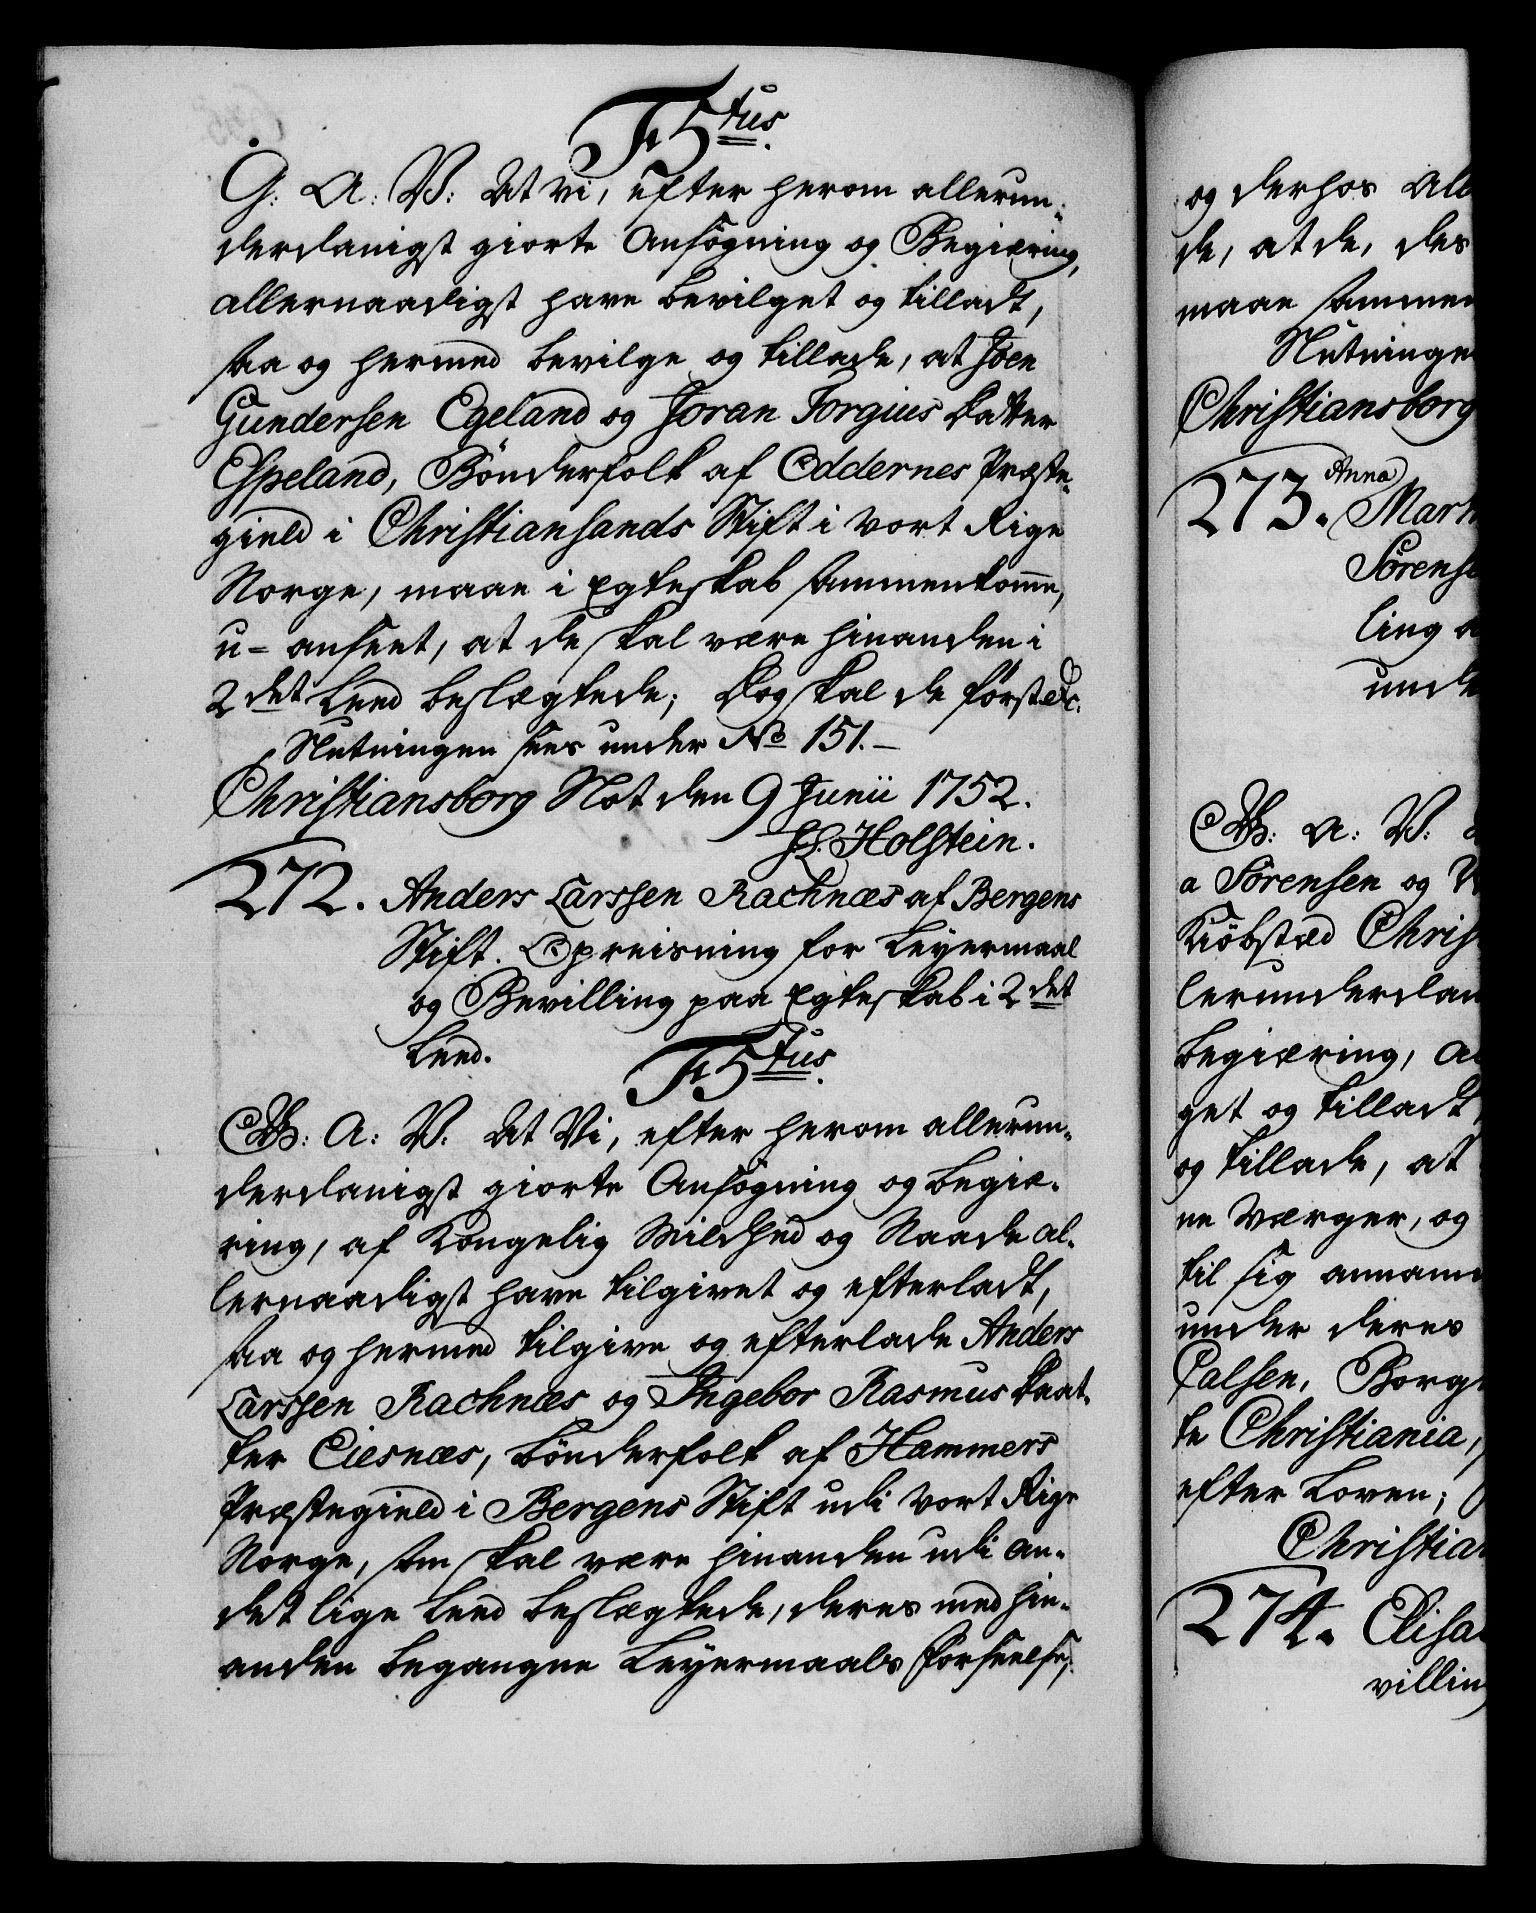 F5tus.
G: A: V: At vi, efter herom allerun-
derdanigst giorte Ansøgning og Begiæring,
allernaadigst have bevilget og tilladt,
saa og hermed bevilge og tillade, at Joen
Gundersen Egeland og Joran Torgius Datter
Espeland, Bønderfolk af Oddernes Præste-
gield i Christiansands Stift i vort Rige
Norge, maae i Egteskab sammenkomme,
u-anseet, at de skal være hinanden i
2det Leed beslægtede; Dog skal de først &c.
Slutningen sees under No 151.-
Christiansborg Slot den 9 Junii 1752.
J. L. Holstein.
272. Anders Larssen Rachnæs af Bergens
Stift. Opreisning for Leyermaal
og Bevilling paa Egteskab i 2det
Leed.
F5tus.
G: A: V: At Vi, efter herom allerun-
derdanigst giorte Ansøgning og Begiæ-
ring, af Kongelig Mildhed og Naade al-
lernaadigst have tilgivet og efterladt,
saa og hermed tilgive og efterlade Anders
Larssen Rachnæs og Ingebor Rasmus Daat-
ter Eiesnæs, bønderfolk af Hammers
Præstegield i Bergens Stift udi vort Rige
Norge, som skal være hinanden udi an-
det lige Leed beslægtede, deres med hin-
anden begangne Leyermaals Forseelse,
og derhos All
de, at de, des
maae sammen
Slutninge
Christiansborg
273. Anna
Mart
Sørens
ling
unde
G: A: V:
a Sørensen og
Kiøbstæd Chris
lerunderdan
begiæring, al
get og tilladt,
og tillade, at
ne Værger, og
til sig annam
under deres
Calsen, Borg
te Christiania,
efter Loven;
Christia
274. Elisa
villin